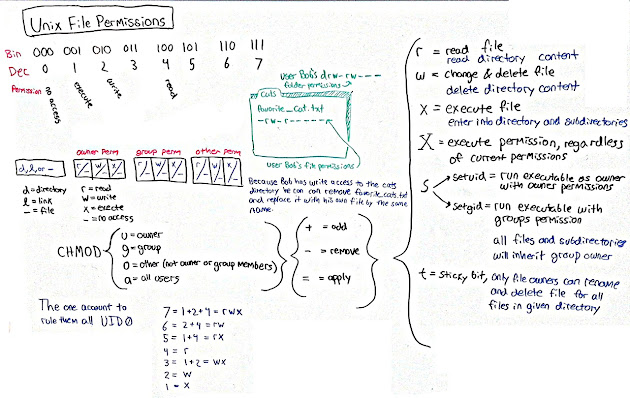 Unix File Permissions
Bin 000 001 010 011 100 101 110 111
Dec 0 1 2 3 4 5 6 7
Permission no access execute write read
user Bob's drw-rw---
folder permissions
Cats
favorite_Cat.txt
-rw-r-----
user Bob's file permissions
Because Bob has write access to the cats
directory he can can remove favorite_cat.txt
and replace it with his own file by the same
name.
owner perm group perm other perm
d, l, or - r/- w/- x/- r/- w/- x/- r/- w/- x/-
d = directory r = read
l = link w = write
- = file x = execute
- = no access
CHMOD
u = owner
g = group
o = other (not owner or group members)
a = all users
+ = add
- = remove
= = apply
r = read file
read directory content
w = change & delete file
delete directory content
x = execute file
enter into directory and subdirectories
X = execute permission, regardless
of current permissions
s
setuid = run executable as owner
with owner permissions
setgid = run executable with
groups permission
all files and subdirectories
will inherit group owner
t = sticky bit, only file owners can rename
and delete file for all
files in given directory
The one account to
rule them all UID0
7 = 1+2+4 = rwx
6 = 2+4 = rw
5 = 1+4 = rx
4 = r
3 = 1+2 = wx
2 = w
1 = x